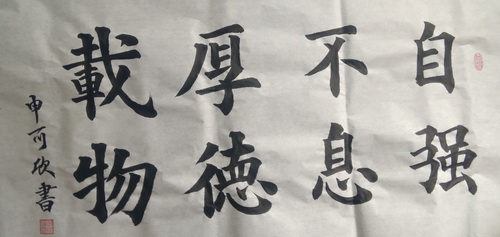 自强
不息
厚德
載物
申可欣書